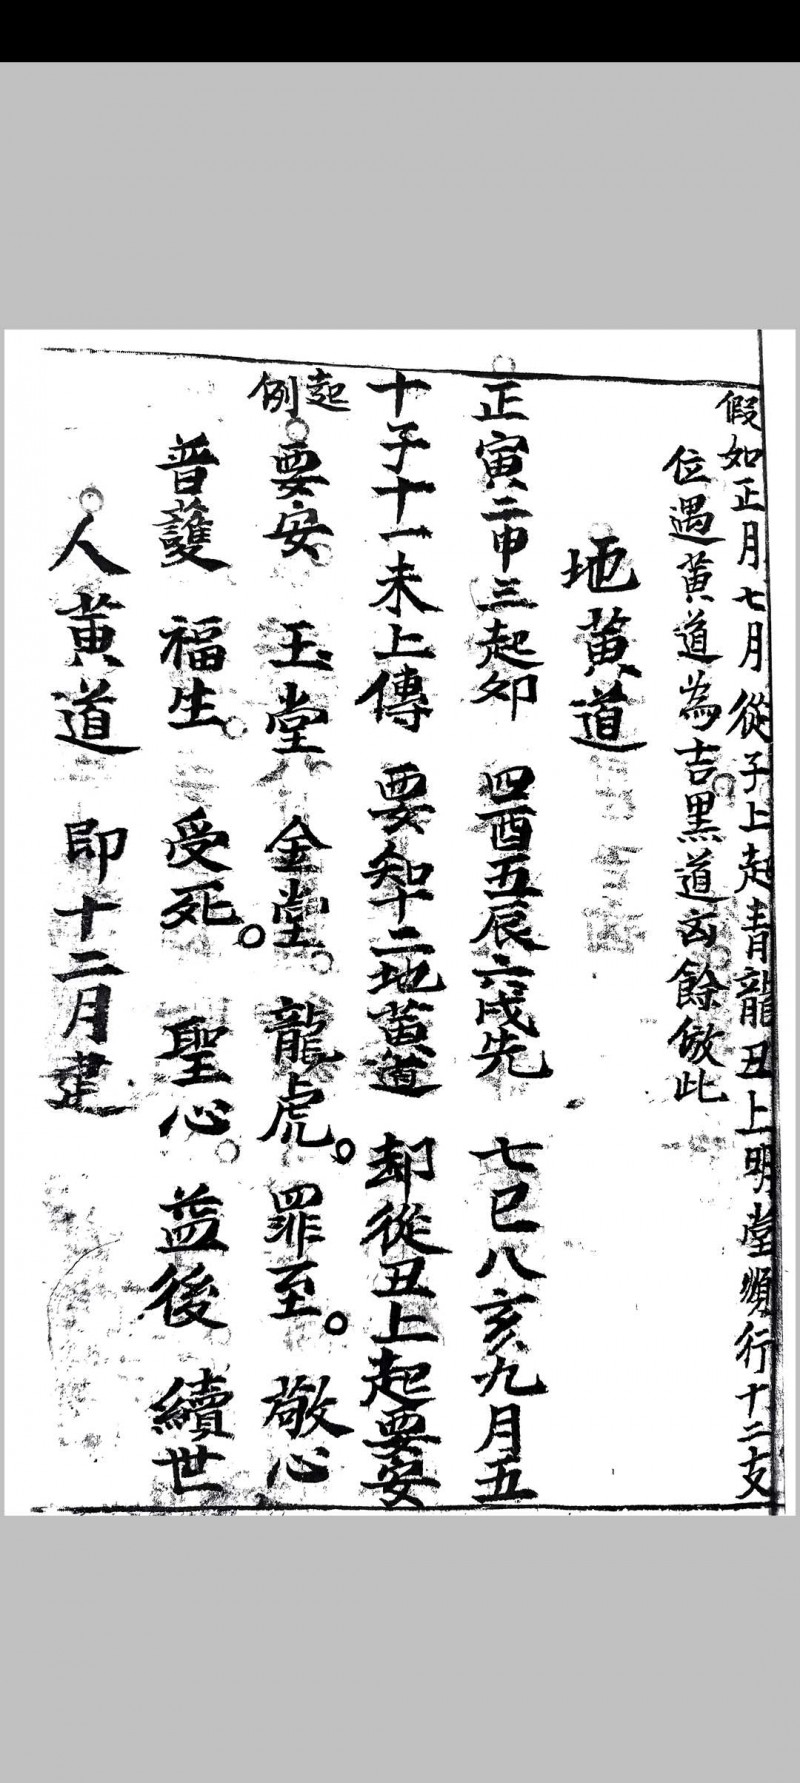 假如正月七月從子上起青龍丑上明堂順行十二支
位遇黃道為吉黑道凶餘倣此
地黃道
正寅二申三起卯 四酉五辰六戌先 七巳八亥九月五
十子十一未上傳 要知十二地黃道 却從丑上起要安
起例 要安 玉堂 金堂 龍虎 罪至 敬心
普護 福生 受死 聖心 益後 續世
人黃道 即十二月建